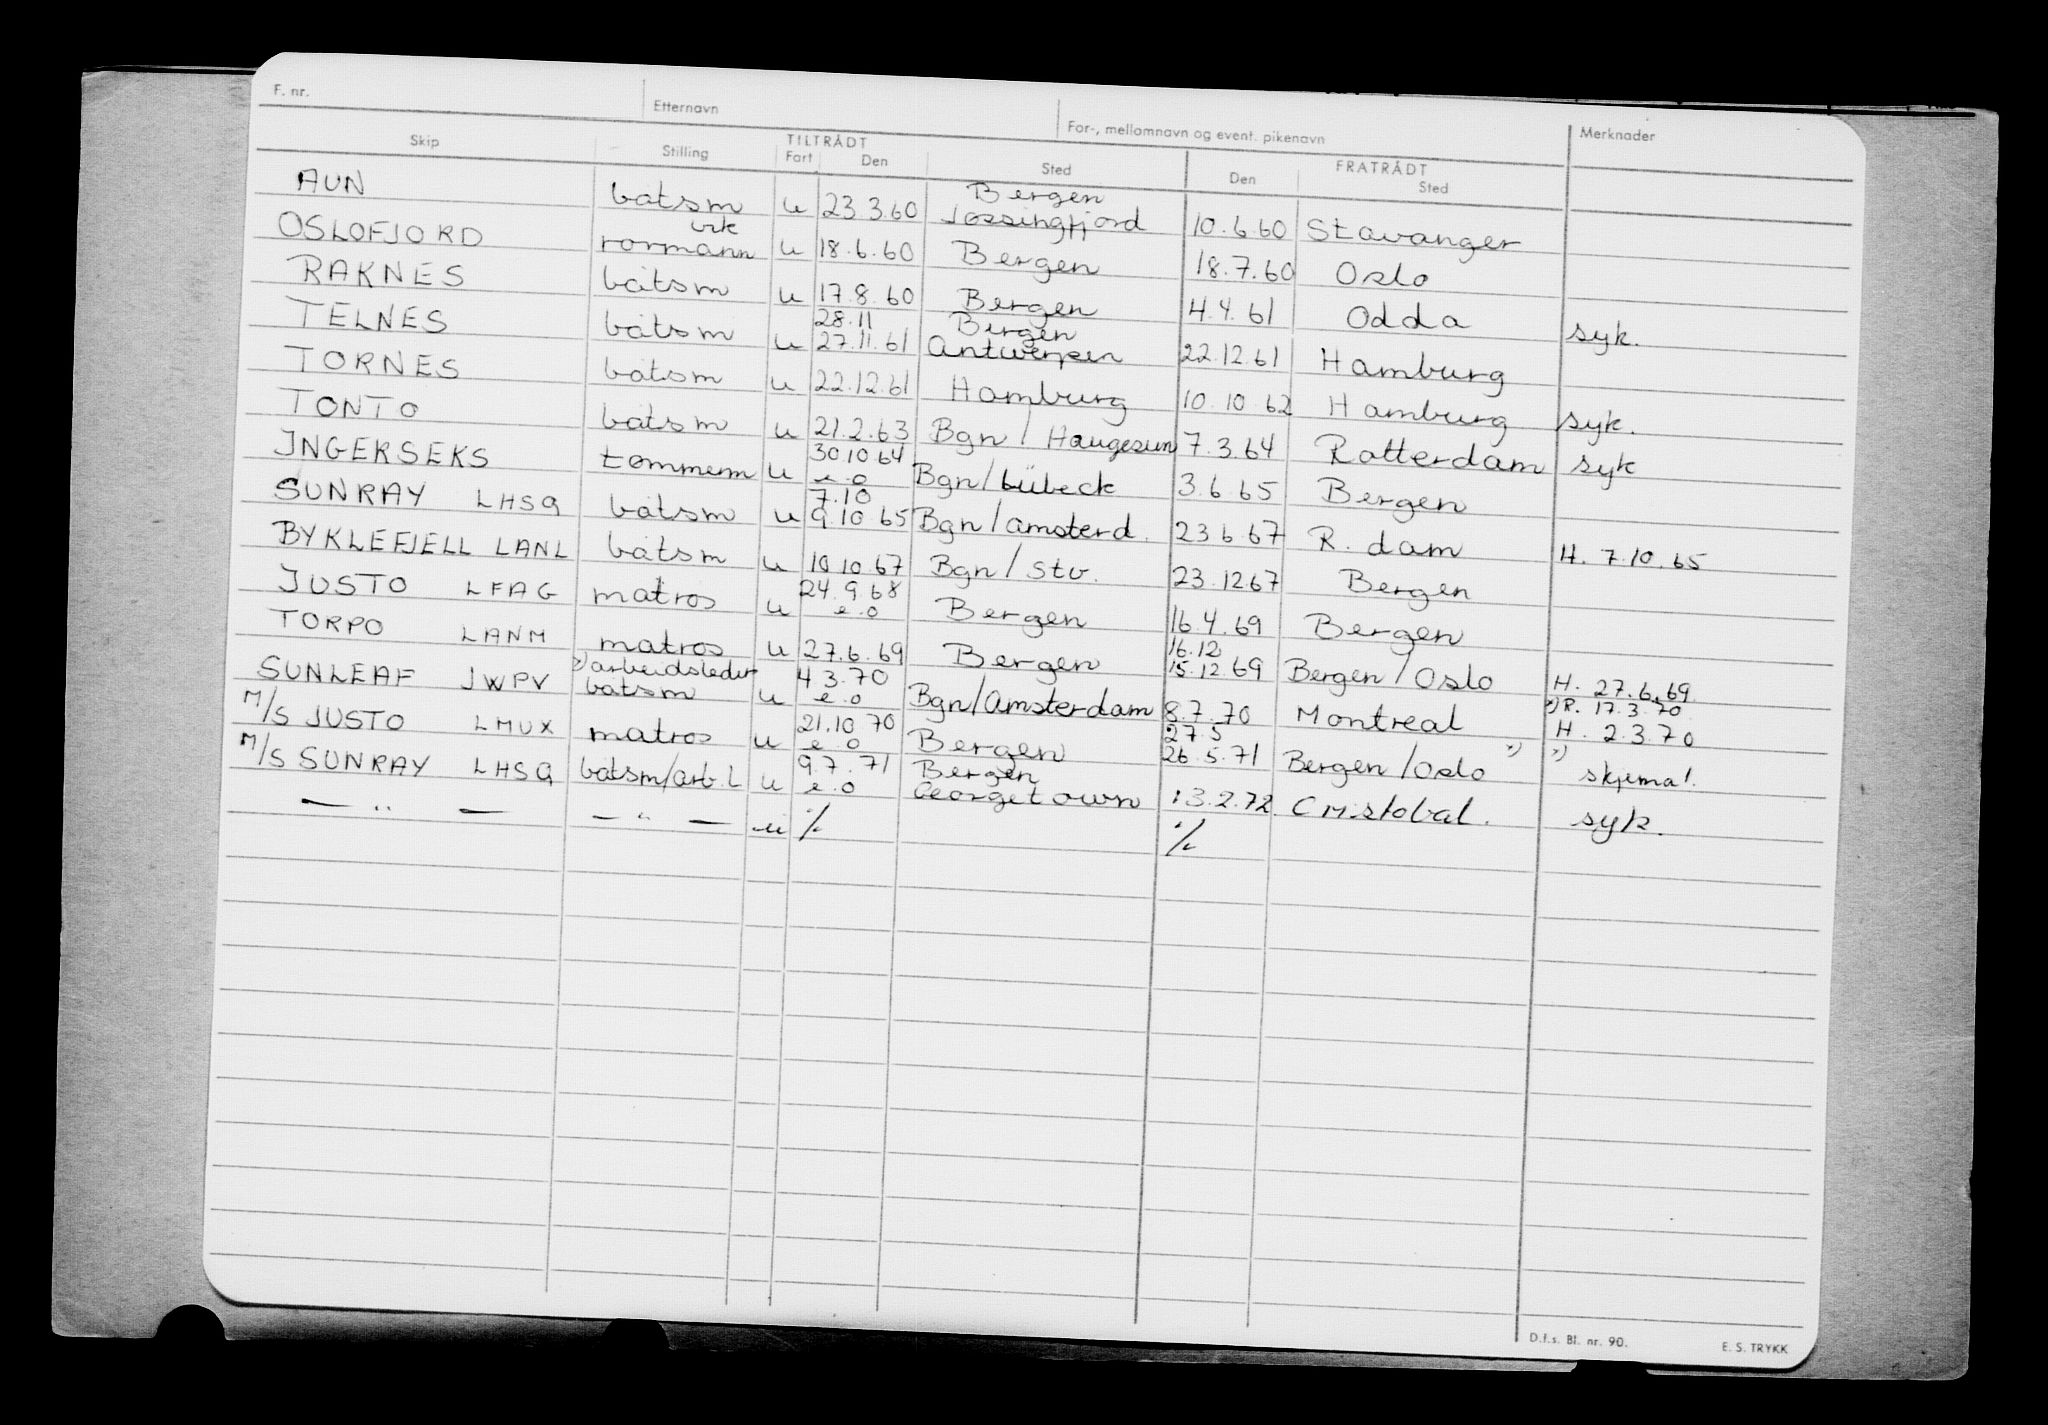 F. nr. Etternavn For-, mellomnavn og event. pikenavn Merknader
Skip Stilling TILTRÅDT Fart Den Sted FRATRÅDT Den Sted
AUN båtsm u 23.3.60 Bergen Jøssingfjord 10.6.60 Stavanger
OSLOFJORD vik rormann u 18.6.60 Bergen 18.7.60 Oslo
RAKNES båtsm u 17.8.60 Bergen 4.4.61 Odda syk.
TELNES båtsm u 28.11 27.11.61 Bergen Antwerpen 22.12.61 Hamburg
TORNES båtsm u 22.12.61 Hamburg 10.10.62 Hamburg syk.
TONTO båtsm u 21.2.63 Bgn / Haugesun 7.3.64 Rotterdam syk
INGERSEKS tømmerm u 30.10.64 e.o Bgn/Lübeck 3.6.65 Bergen
SUNRAY LHSQ båtsm u 7.10 9.10.65 Bgn/Amsterd. 23.6.67 R.dam H. 7.10.65
BYKLEFJELL LANL båtsm u 10.10.67 Bgn/Stv. 23.12.67 Bergen
JUSTO LFAG matros u 24.9.68 e.o Bergen 16.4.69 Bergen
TORPO LANM matros u 27.6.69 Bergen 16.12 15.12.69 Bergen/Oslo H. 27.6.69
SUNLEAF JWPV x) arbeidsleder båtsm u 4.3.70 e.o Bgn/Amsterdam 8.7.70 Montreal x) R. 17.3.70 H. 2.3.70
M/S JUSTO LMUX matros u 21.10.70 e.o Bergen 27.5 26.5.71 Bergen/Oslo x) x) skjema!
M/S SUNRAY LHSQ båtsm/arb.l u 9.7.71 e.o Bergen Georgetown 13.2.72. Cristobal. syk.
— " — — " — u ./. ./.
D.f.s. Bl. nr. 90. E. S. TRYKK